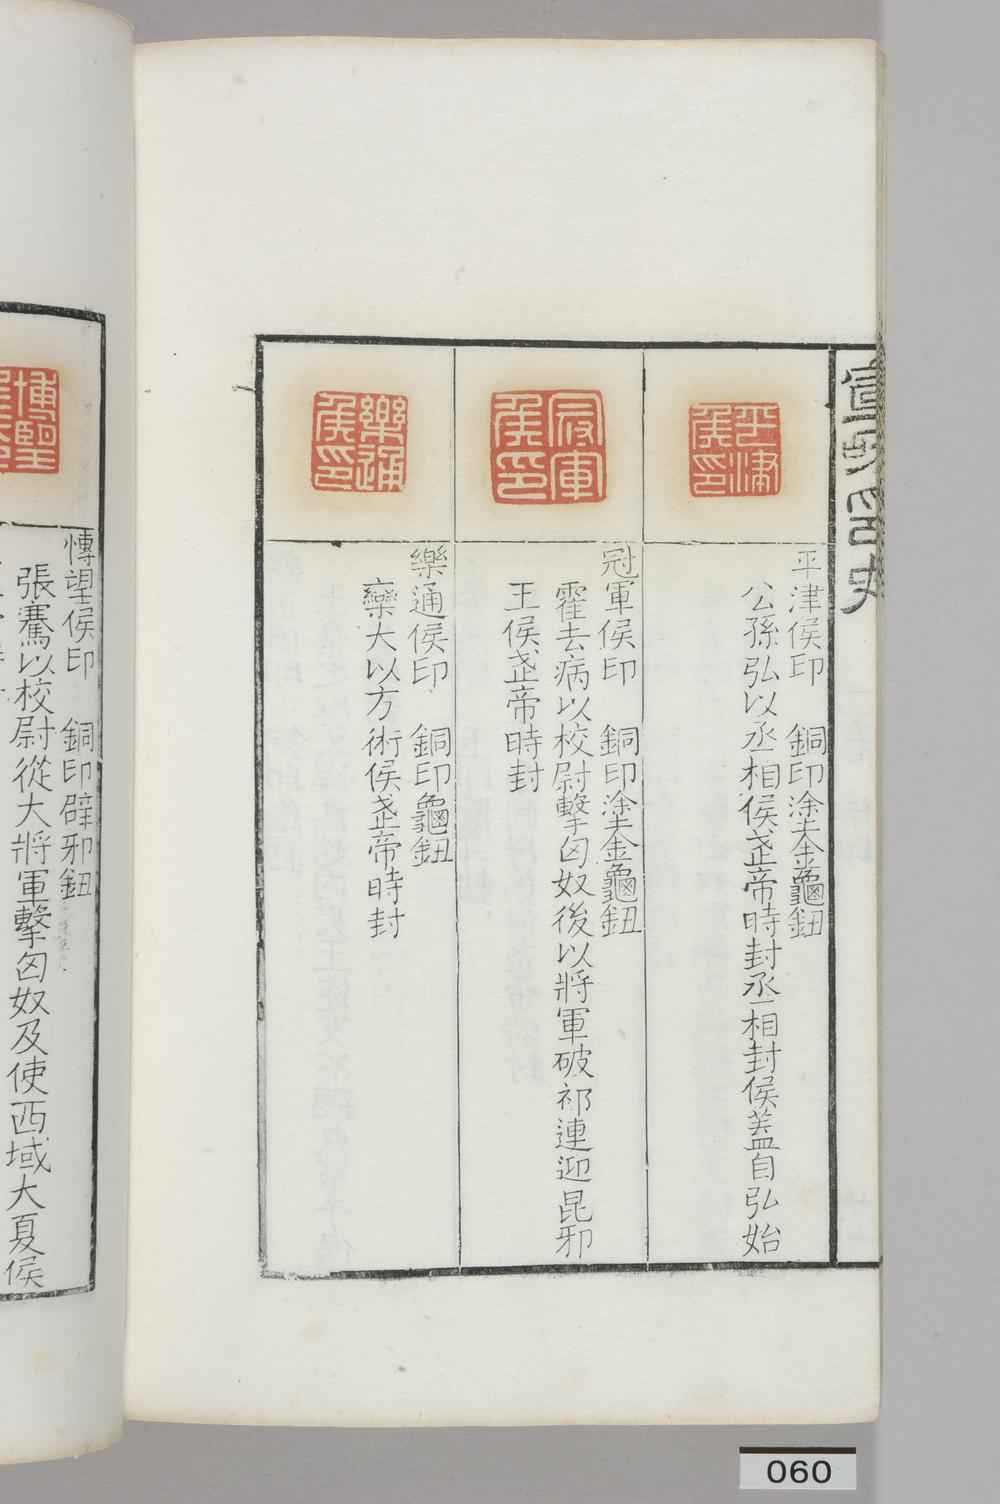 宣和印史
平津侯印
平津侯印　銅印塗金龜鈕
公孫弘以丞相侯武帝時封丞相封侯蓋自弘始
冠軍侯印
冠軍侯印　銅印塗金龜鈕
霍去病以校尉擊匈奴後以將軍破祁連迎昆邪
王侯武帝時封
樂通侯印
樂通侯印　銅印龜鈕
欒大以方術侯武帝時封
博望
博望侯印　銅印辟邪鈕
張騫以校尉從大將軍擊匈奴及使西域大夏侯
060